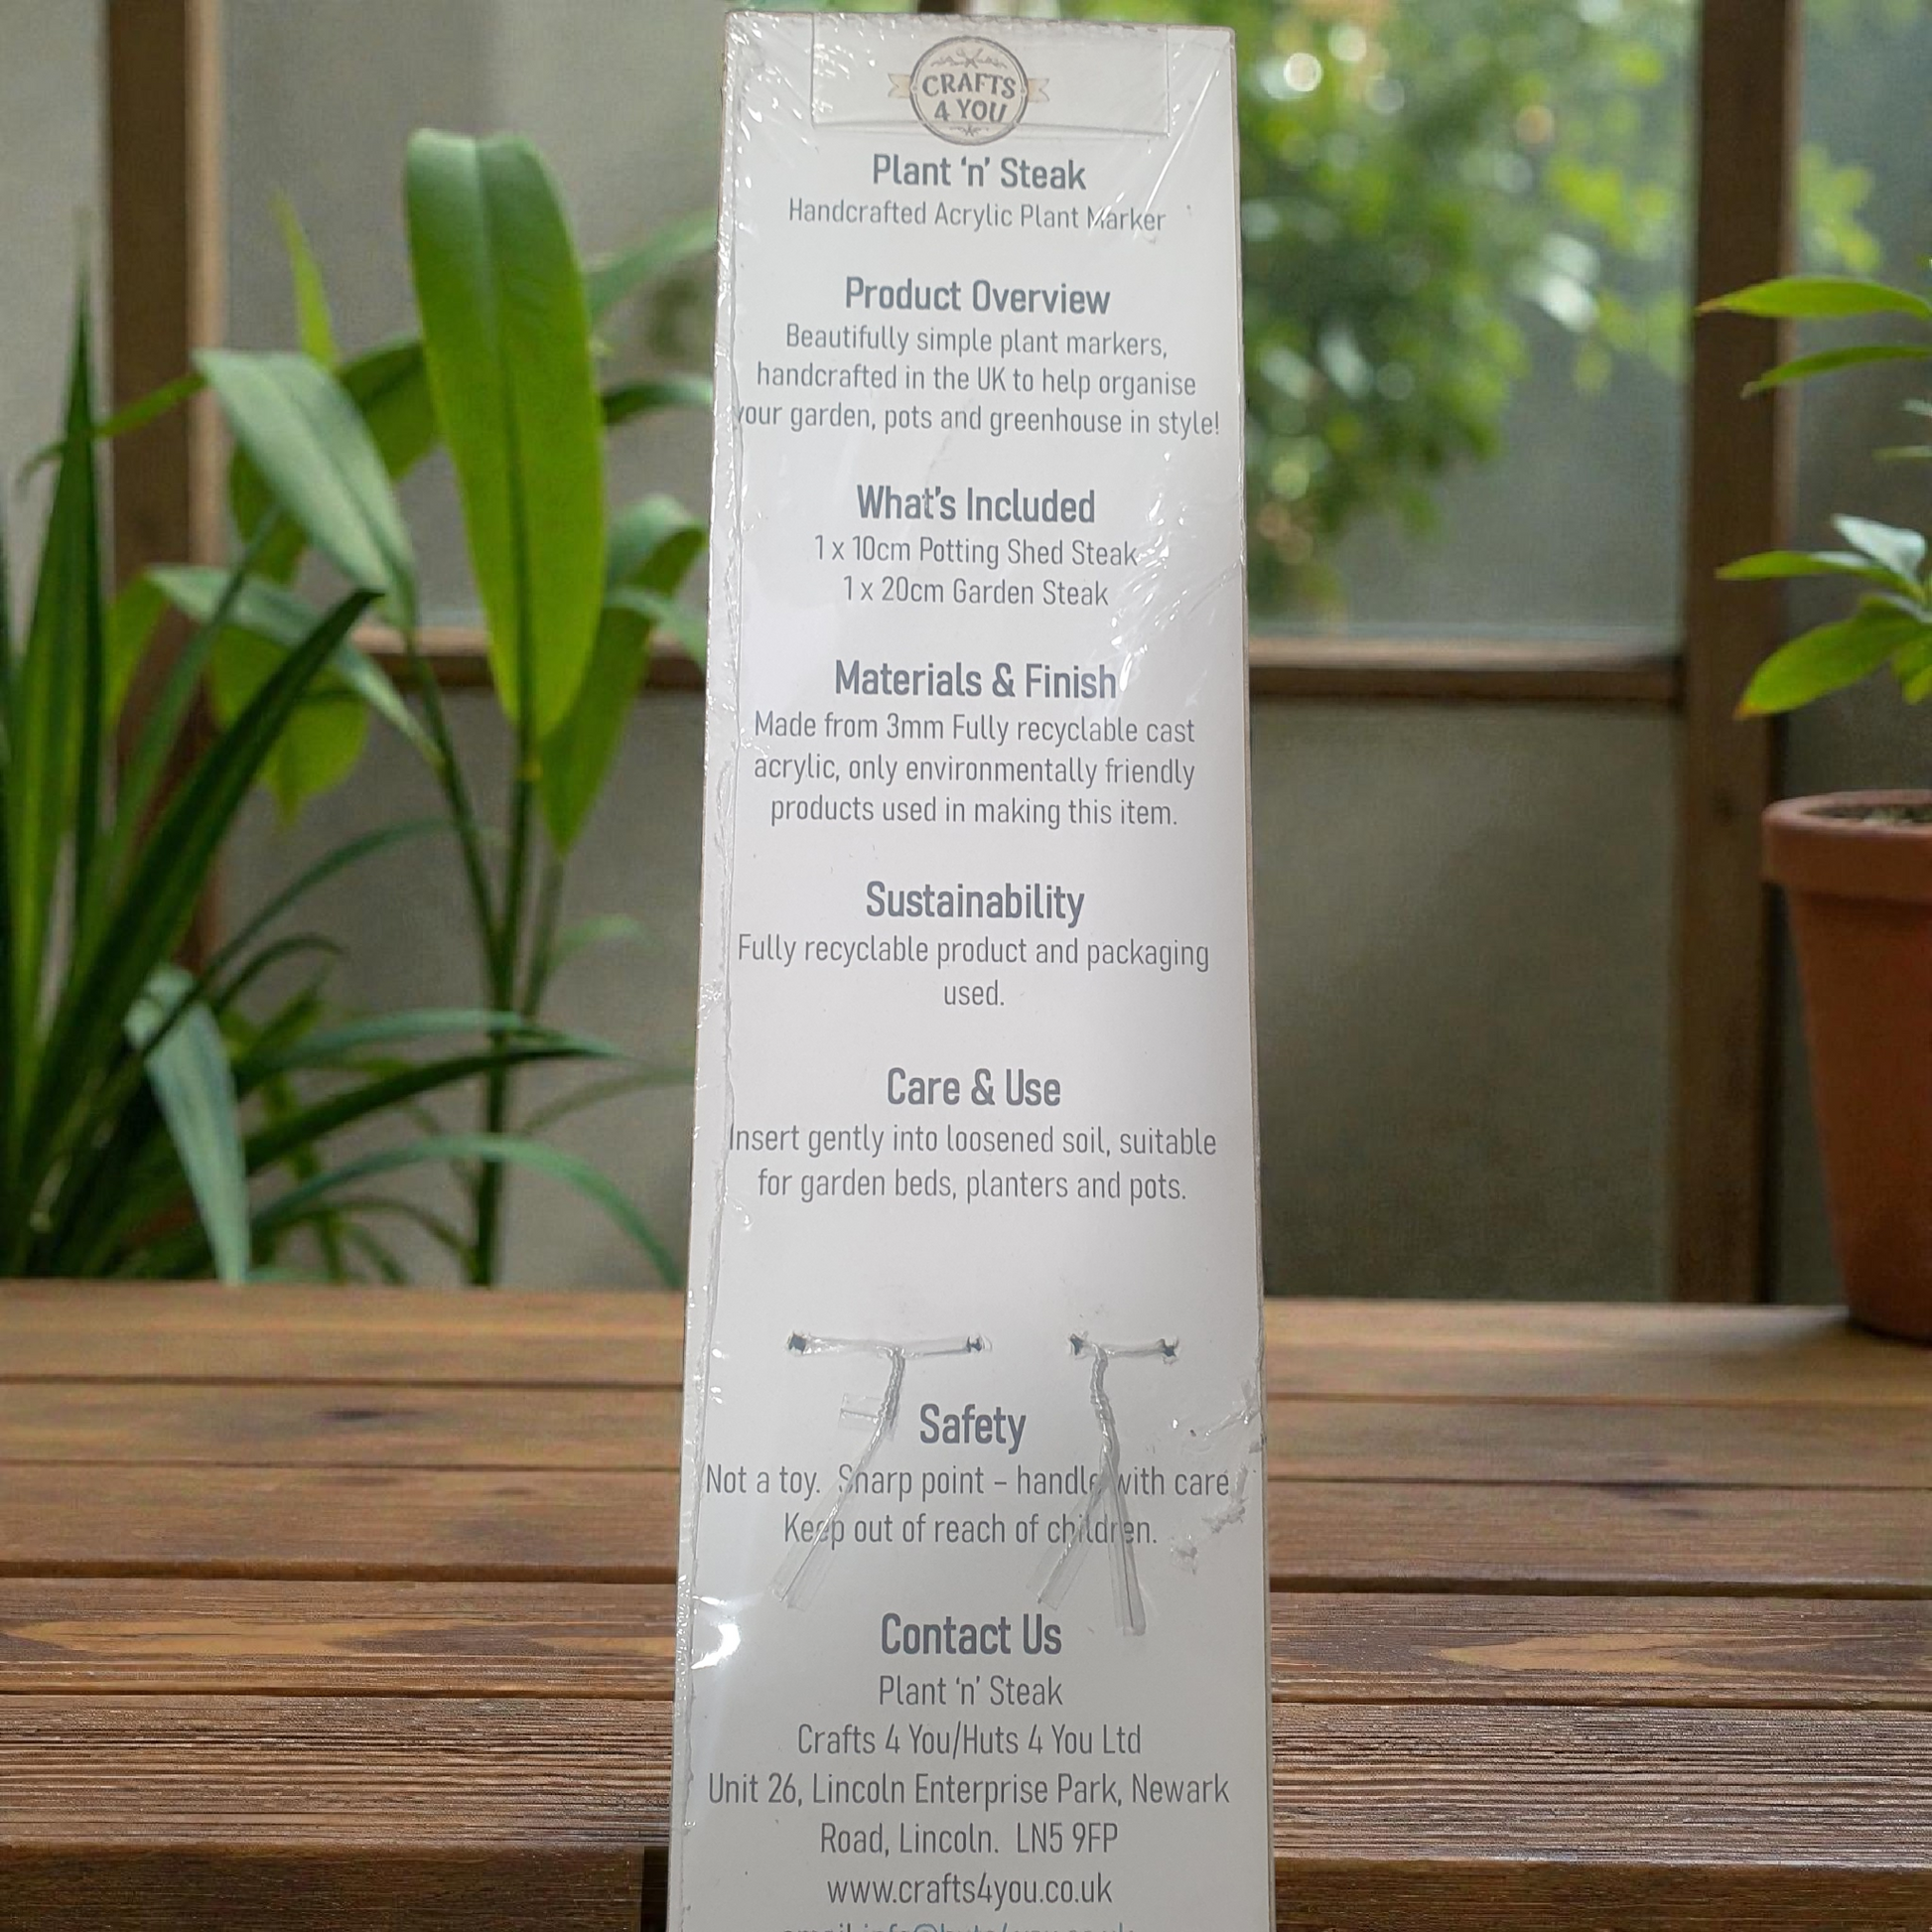 CRAFTS
4 YOU
Plant ‘n’ Steak
Handcrafted Acrylic Plant Marker
Product Overview
Beautifully simple plant markers,
handcrafted in the UK to help organise
your garden, pots and greenhouse in style!
What’s Included
1 x 10cm Potting Shed Steak
1 x 20cm Garden Steak
Materials & Finish
Made from 3mm Fully recyclable cast
acrylic, only environmentally friendly
products used in making this item.
Sustainability
Fully recyclable product and packaging
used.
Care & Use
Insert gently into loosened soil, suitable
for garden beds, planters and pots.
Safety
Not a toy. Sharp point – handle with care
Keep out of reach of children.
Contact Us
Plant ‘n’ Steak
Crafts 4 You/Huts 4 You Ltd
Unit 26, Lincoln Enterprise Park, Newark
Road, Lincoln. LN5 9FP
www.crafts4you.co.uk